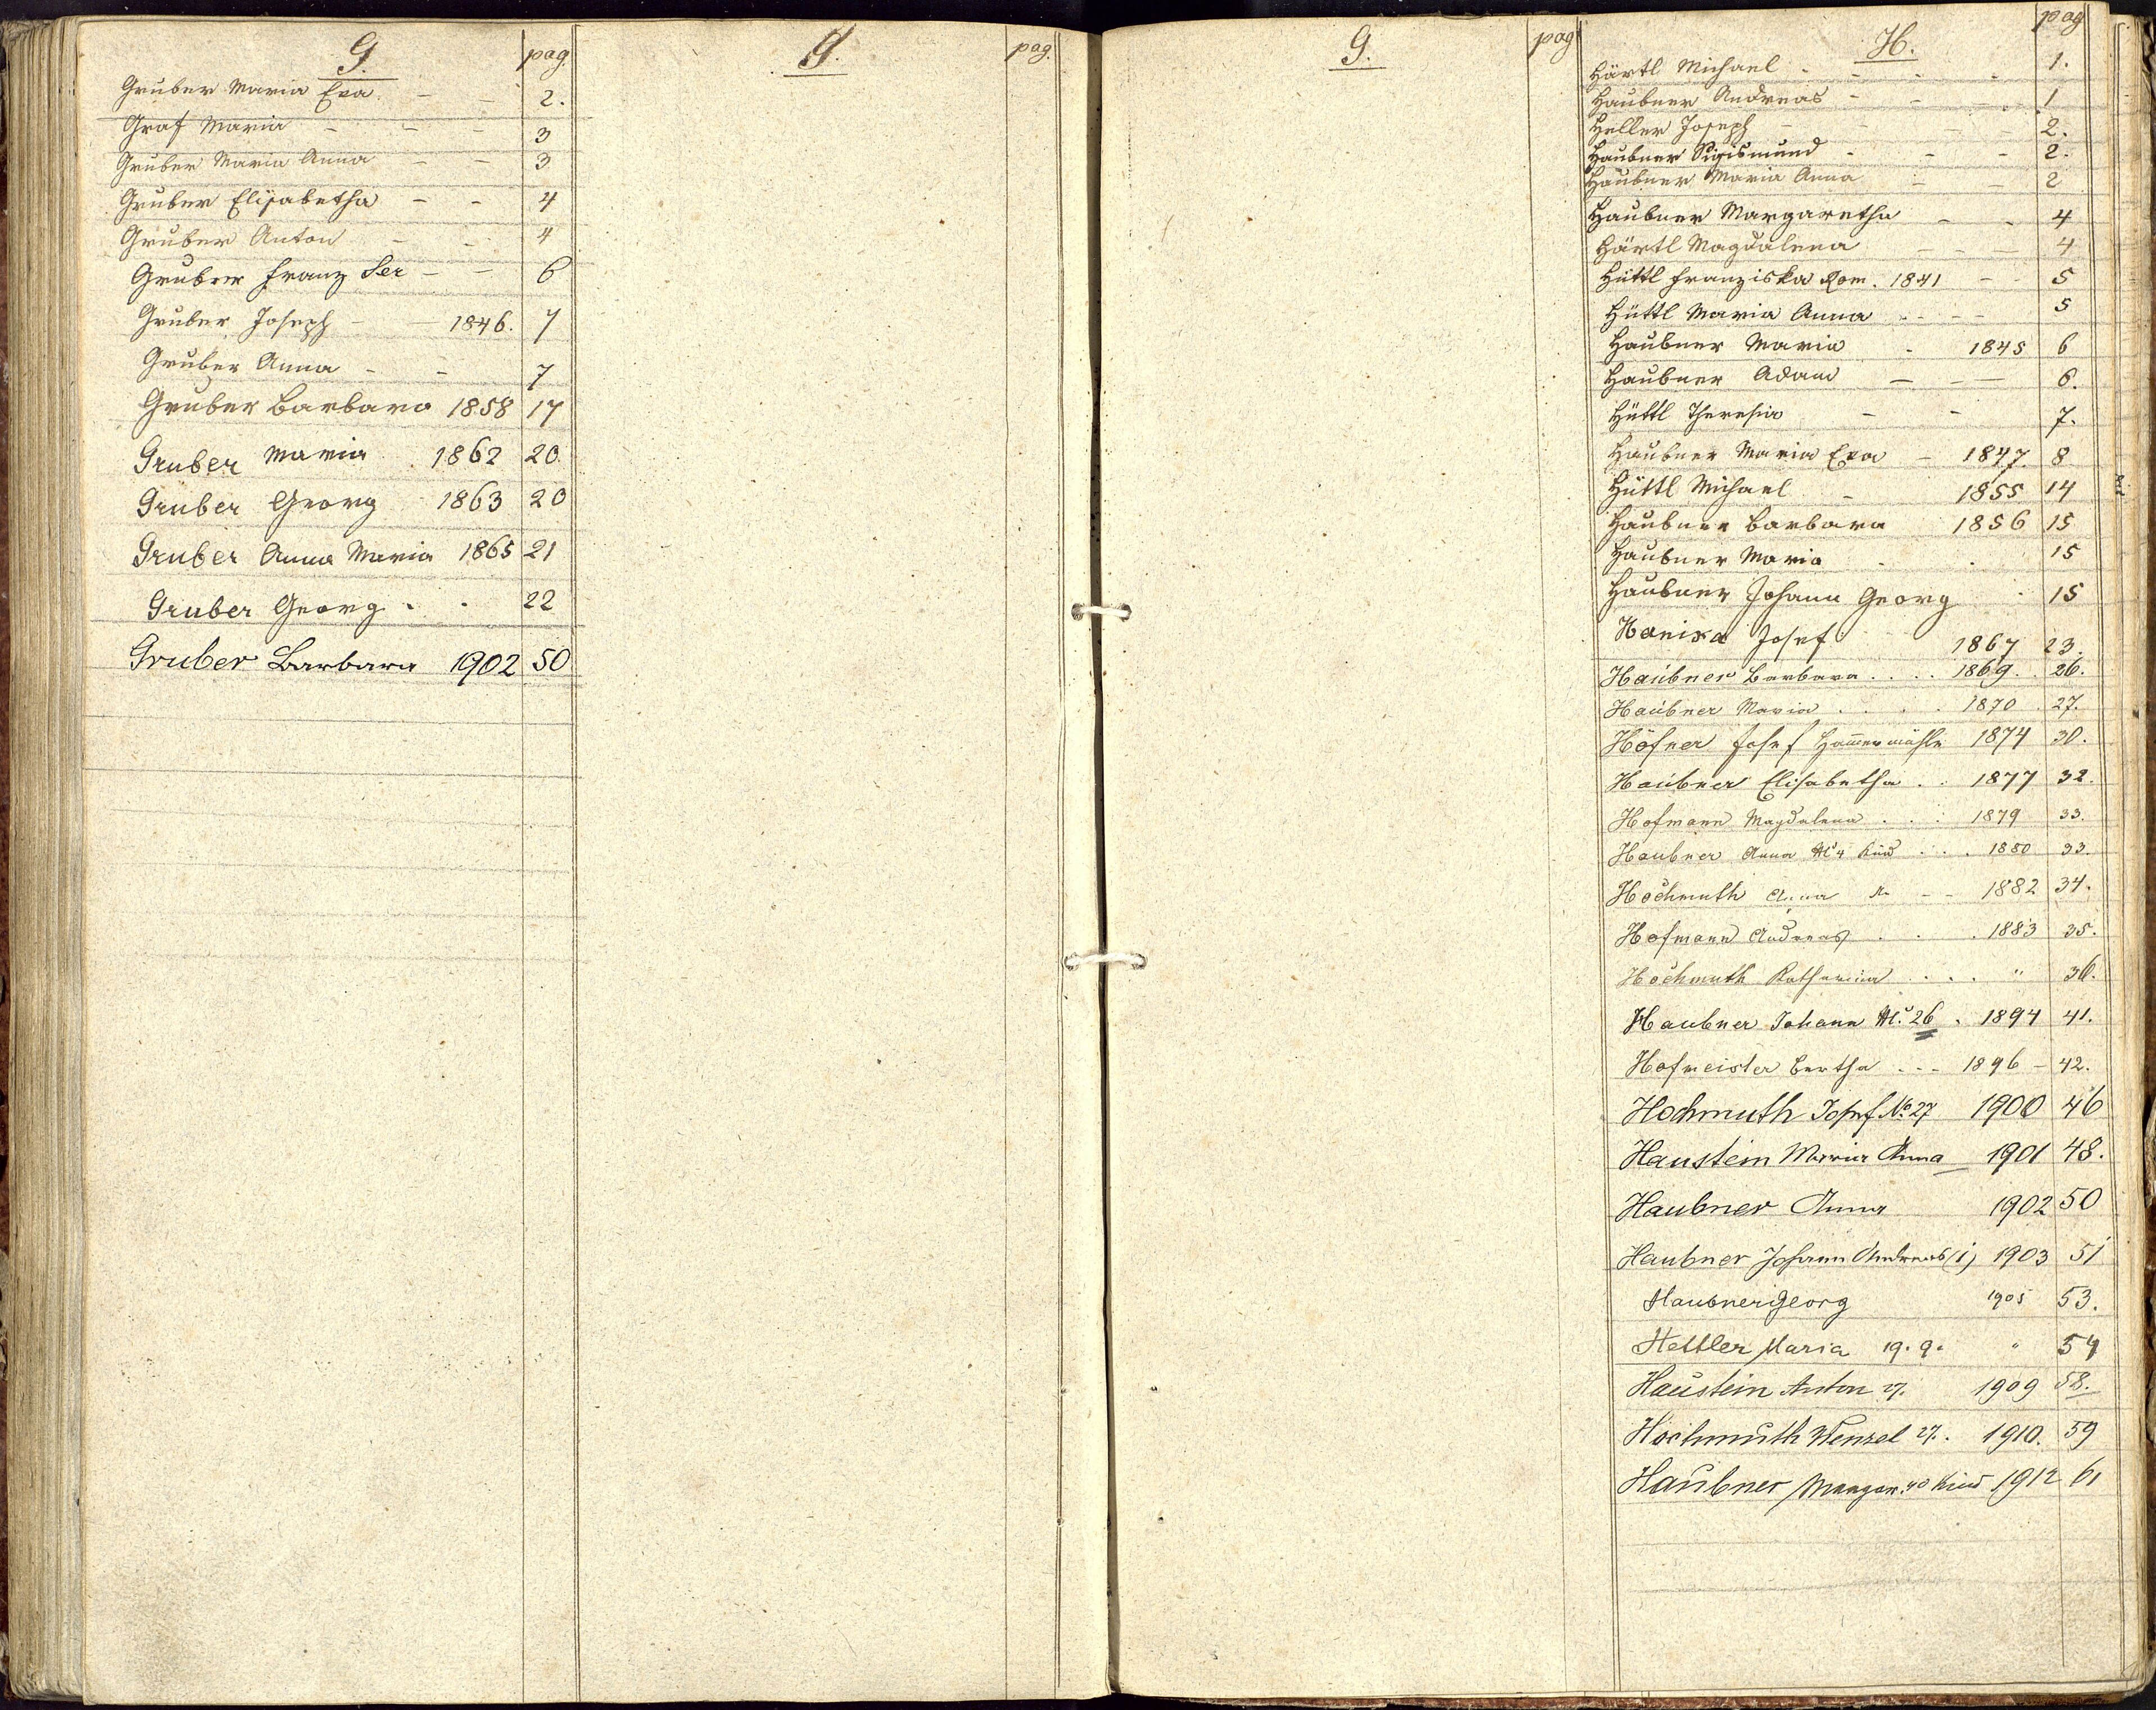 G. pag.
Gruber Maria Eva - - 2.
Graf Maria - - - 3
Gruber Maria Anna - - 3
Gruber Elisabetha - - 4
Gruber Anton - - 4
Gruber Franz Ser - - 6
Gruber Joseph - - 1846. 7
Gruber Anna - - 7
Gruber Barbara 1858 17
Gruber Maria 1862 20.
Gruber Georg 1863 20
Gruber Anna Maria 1865 21
Gruber Georg . . 22
Gruber Barbara 1902 50
G. pag.
G. pag
H. pag
Härtl Michael - - - - 1.
Haubner Andreas - - - 1
Heller Joseph - - - 2.
Haubner Sigismund - - - 2.
Haubner Maria Anna - - 2
Haubner Margaretha - - 4
Härtl Magdalena - - - 4
Hüttl Franziska Rom. 1841 - - 5
Hüttl Maria Anna - - - 5
Haubner Maria - 1845 6
Haubner Adam - - - 6.
Hüttl Theresia - - 7.
Haubner Maria Eva - 1847. 8
Hüttl Michael - 1855 14
Haubner Barbara 1856 15
Haubner Maria . . 15
Haubner Johann Georg . 15
Hanika Josef 1867 23.
Haubner Barbara . . . . 1869. . 26.
Haubner Maria . . . . 1870 . 27.
Höfner Josef Hammermühle 1874 30.
Haubner Elisabetha . . 1877 32.
Hofmann Magdalena . . . 1879 33.
Haubner Anna Nº 4 Kind . . . 1880 33.
Hochmuth Anna - - 1882 34.
Hofmann Andreas . . . 1883 35.
Hochmuth Katharina . . . . " 36.
Haubner Johann Nº. 26 . 1894 41.
Hofmeister Bertha - - - 1896 - 42.
Hochmuth Josef Nº 27 1900 46
Haustein Maria Anna 1901 48.
Haubner Anna 1902 50
Haubner Johann Andreas (i) 1903 51
Haubner Georg 1905 53.
Hettler Maria 19. 9. " 54
Haustein Anton 27. 1909 58.
Hochmuth Wenzel 27. . 1910. 59
Haubner Margar. 40 Kind 1912 61